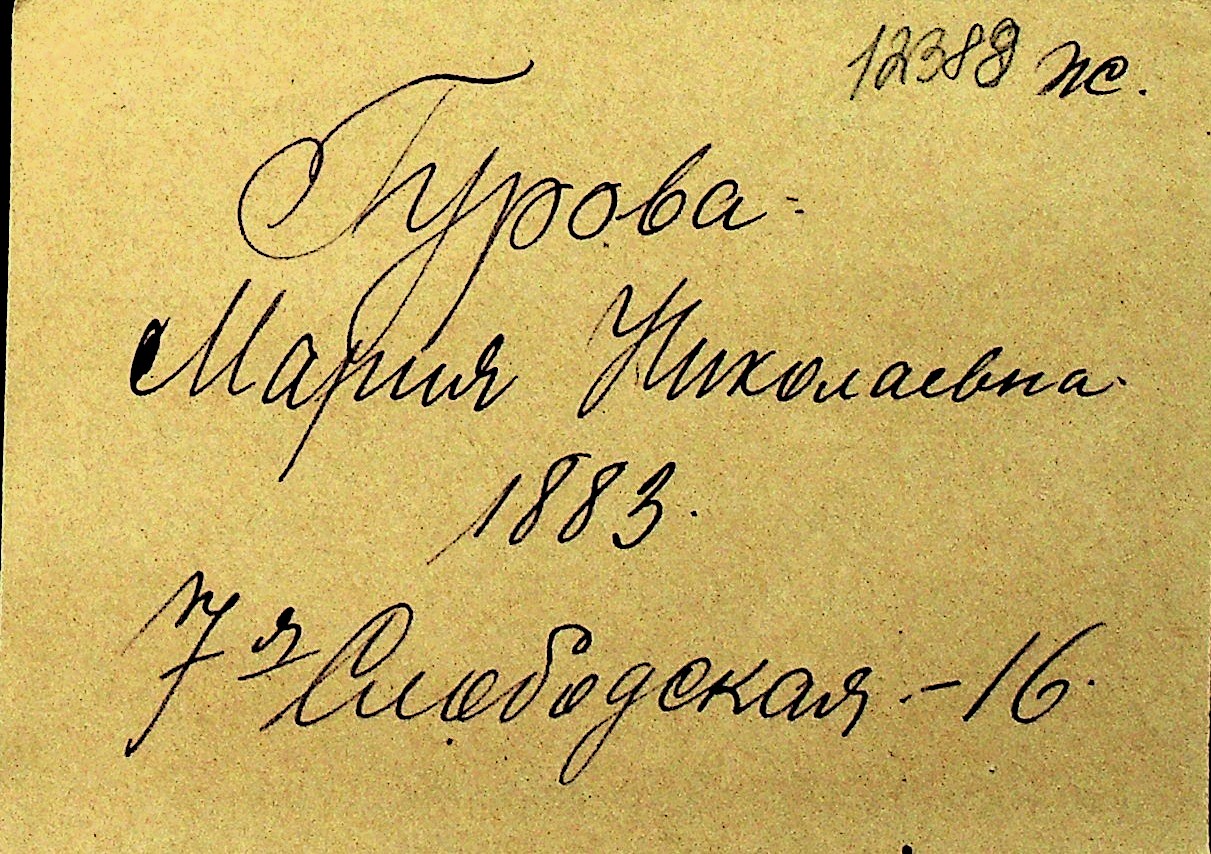 12388 ж.
Гурова
Мария Николаевна
1883.
7я Слободская - 16